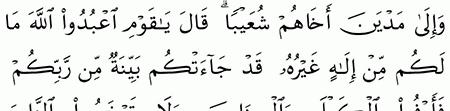 وَإِلَىٰ مَدْيَنَ أَخَاهُمْ شُعَيْبًا ۗ قَالَ يَـٰقَوْمِ ٱعْبُدُوا۟ ٱللَّهَ مَا
لَكُم مِّنْ إِلَـٰهٍ غَيْرُهُۥ ۖ قَدْ جَآءَتْكُم بَيِّنَةٌ مِّن رَّبِّكُمْ